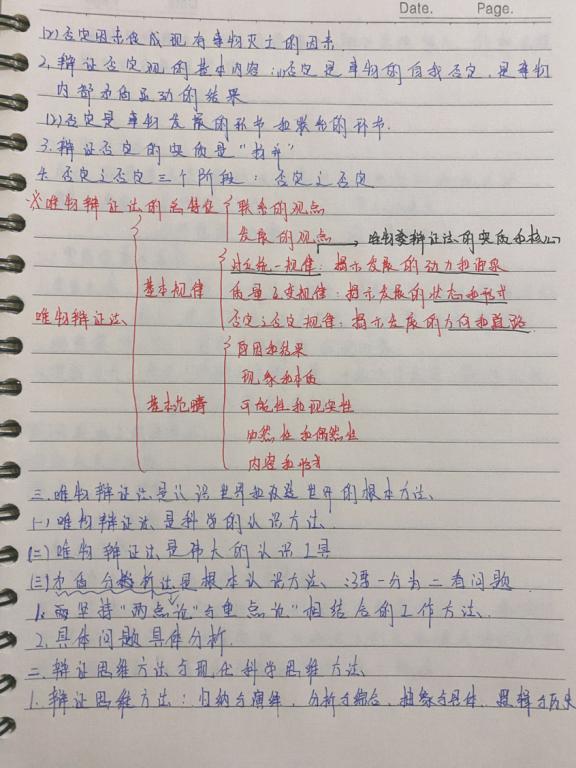 Date. Page.
(2)否定因素促成现有事物灭亡的因素.
2.辩证否定观的基本内容:(1)否定是事物的自我否定,是事物
内部矛盾运动的结果
(2)否定是事物发展的环节和联系的环节.
3.辩证否定的实质是“扬弃”
4.否定之否定三个阶段:否定之否定
※唯物辩证法的总特征 联系的观点
发展的观点
唯物辩证法的实质和核心
对立统一规律:揭示发展的动力和源泉
基本规律 质量互变规律:揭示发展的状态和形式
唯物辩证法 否定之否定规律:揭示发展的方向和道路.
原因和结果
现象和本质
基本范畴 可能性和现实性
必然性和偶然性
内容和形式
三.唯物辩证法是认识世界和改造世界的根本方法、
(一)唯物辩证法是科学的认识方法、
(二)唯物辩证法是伟大的认识工具
(三)矛盾分析法是根本认识方法、:要一分为二看问题
1.要坚持“两点论”与重点论”相结合的工作方法、
2.具体问题具体分析.
二.辩证思维方法与现代科学思维方法、
1.辩证思维方法:归纳与演绎、分析与综合、抽象与具体、逻辑与历史